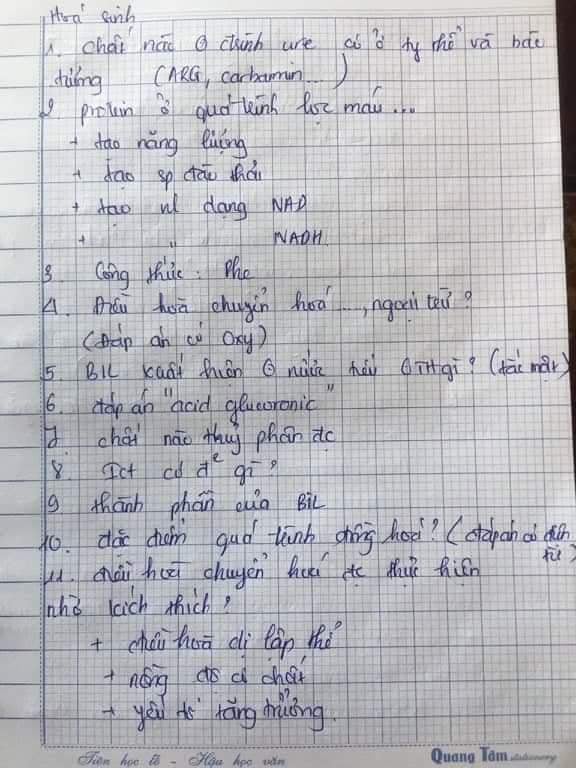 Hoá sinh
1. Chất nào ⊝ ctrình ure có ở ty thể và bào
tương (ARG, carbamin...)
2. protein ở quá trình lọc máu...
+ tạo năng lượng
+ tạo sp đào thải
+ tạo nl dạng NAD
+ " NADH
3. Công thức: Phe
4. Điều hoà chuyển hoá ..., ngoại trừ?
(Đáp án có Oxy)
5. BIL xuất hiện ⊝ nước tiểu ⊝ TH gì? (tắc mật)
6. đáp án "acid glucuronic"
7. chất nào thuỷ phân đc
8. Ict có đ² gì?
9 thành phần của BIL
10. đặc điểm quá trình đồng hoá? (đáp án có điện
tử)
11. điều hoà chuyển hoá đc thực hiện
nhờ kích thích?
+ điều hoà dị lập thể
+ nồng độ cơ chất
+ yếu tố tăng trưởng.
Tiên học lễ - Hậu học văn Quang Tâm stationery